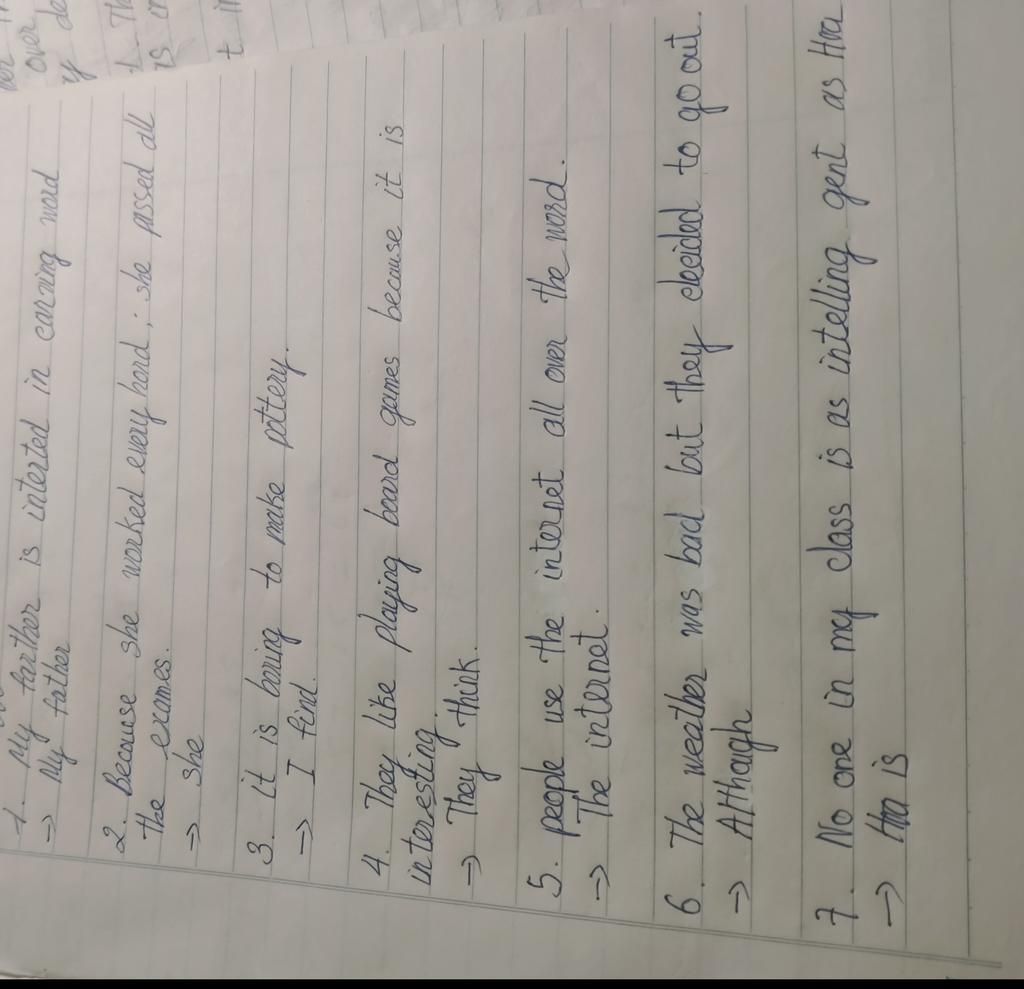 1. My farther is intersted in carving word
→ My father
2. Because she worked every hard, she passed all
the exames.
→ she
3. it is boring to make pottery.
→ I find.
4. They like playing board games because it is
interesting.
→ They think.
5. people use the internet all over the word.
→ The internet.
6. The weather was bad but they decided to go out.
→ Although
7. No one in my class is as intelling gent as Hoa
→ Hoa is